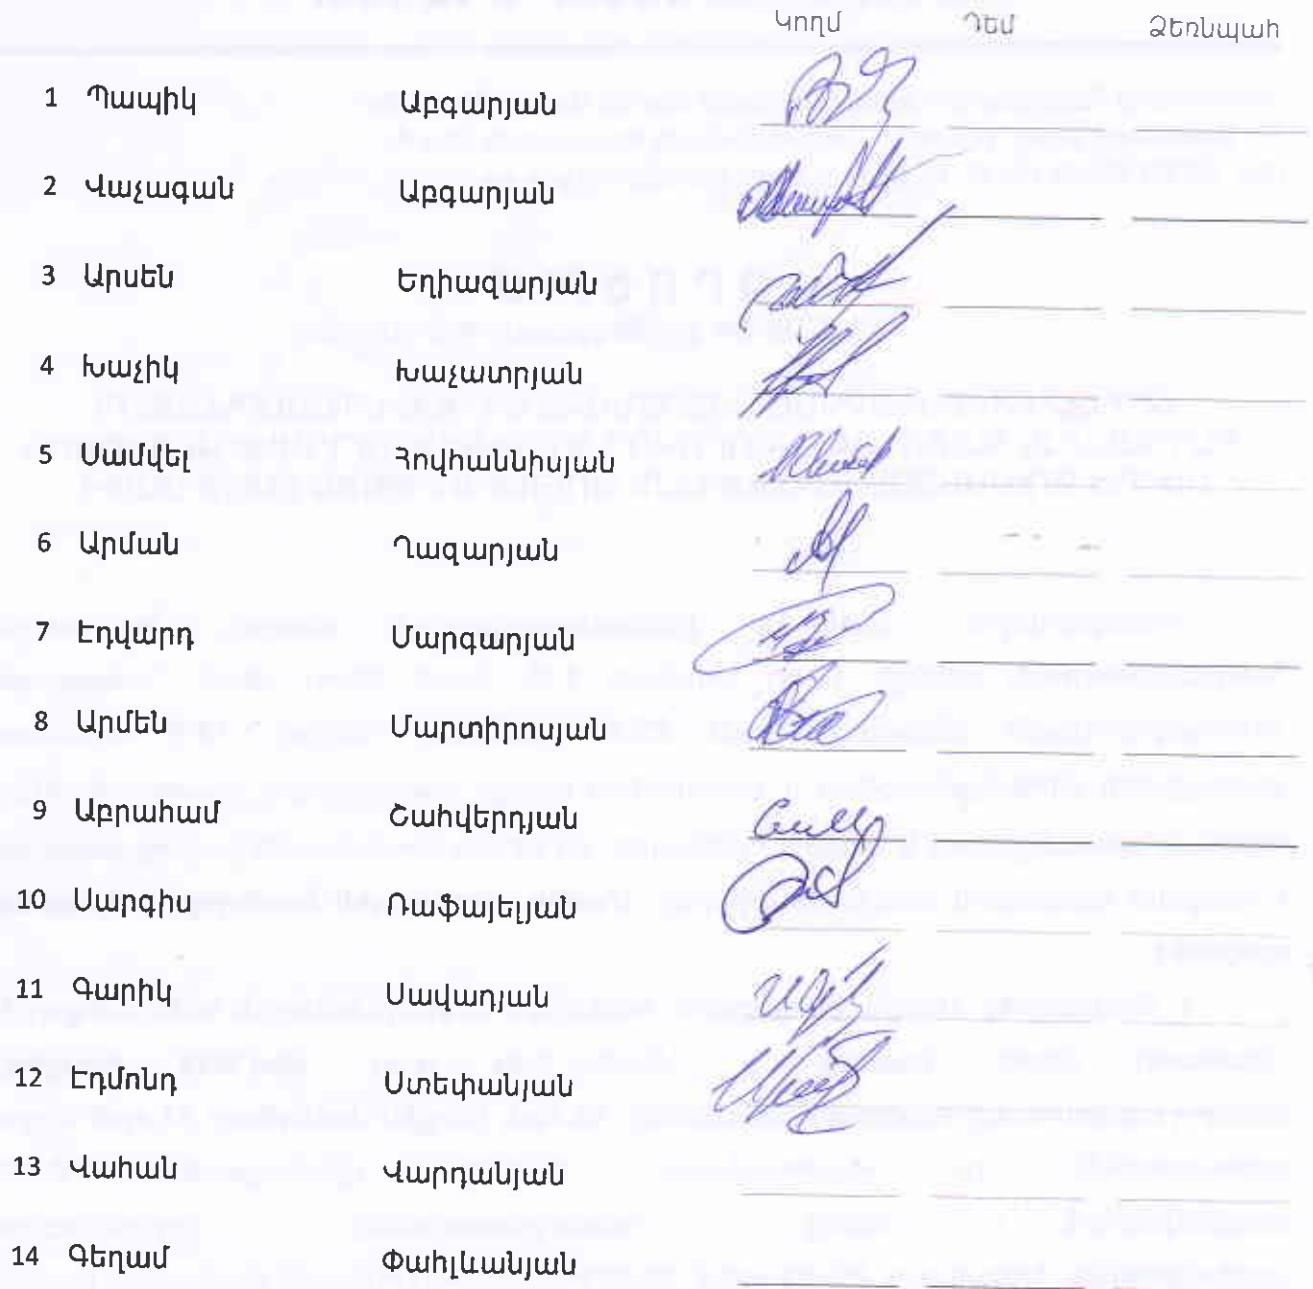 Կողմ Դեմ Ձեռնպահ
1 Պապիկ Աբգարյան
2 Վաչագան Աբգարյան
3 Արսեն Եղիազարյան
4 Խաչիկ Խաչատրյան
5 Սամվել Հովհաննիսյան
6 Արման Ղազարյան
7 Էդվարդ Մարգարյան
8 Արմեն Մարտիրոսյան
9 Աբրահամ Շահվերդյան
10 Սարգիս Ռաֆայելյան
11 Գարիկ Սավադյան
12 Էդմոնդ Ստեփանյան
13 Վահան Վարդանյան
14 Գեղամ Փահլևանյան